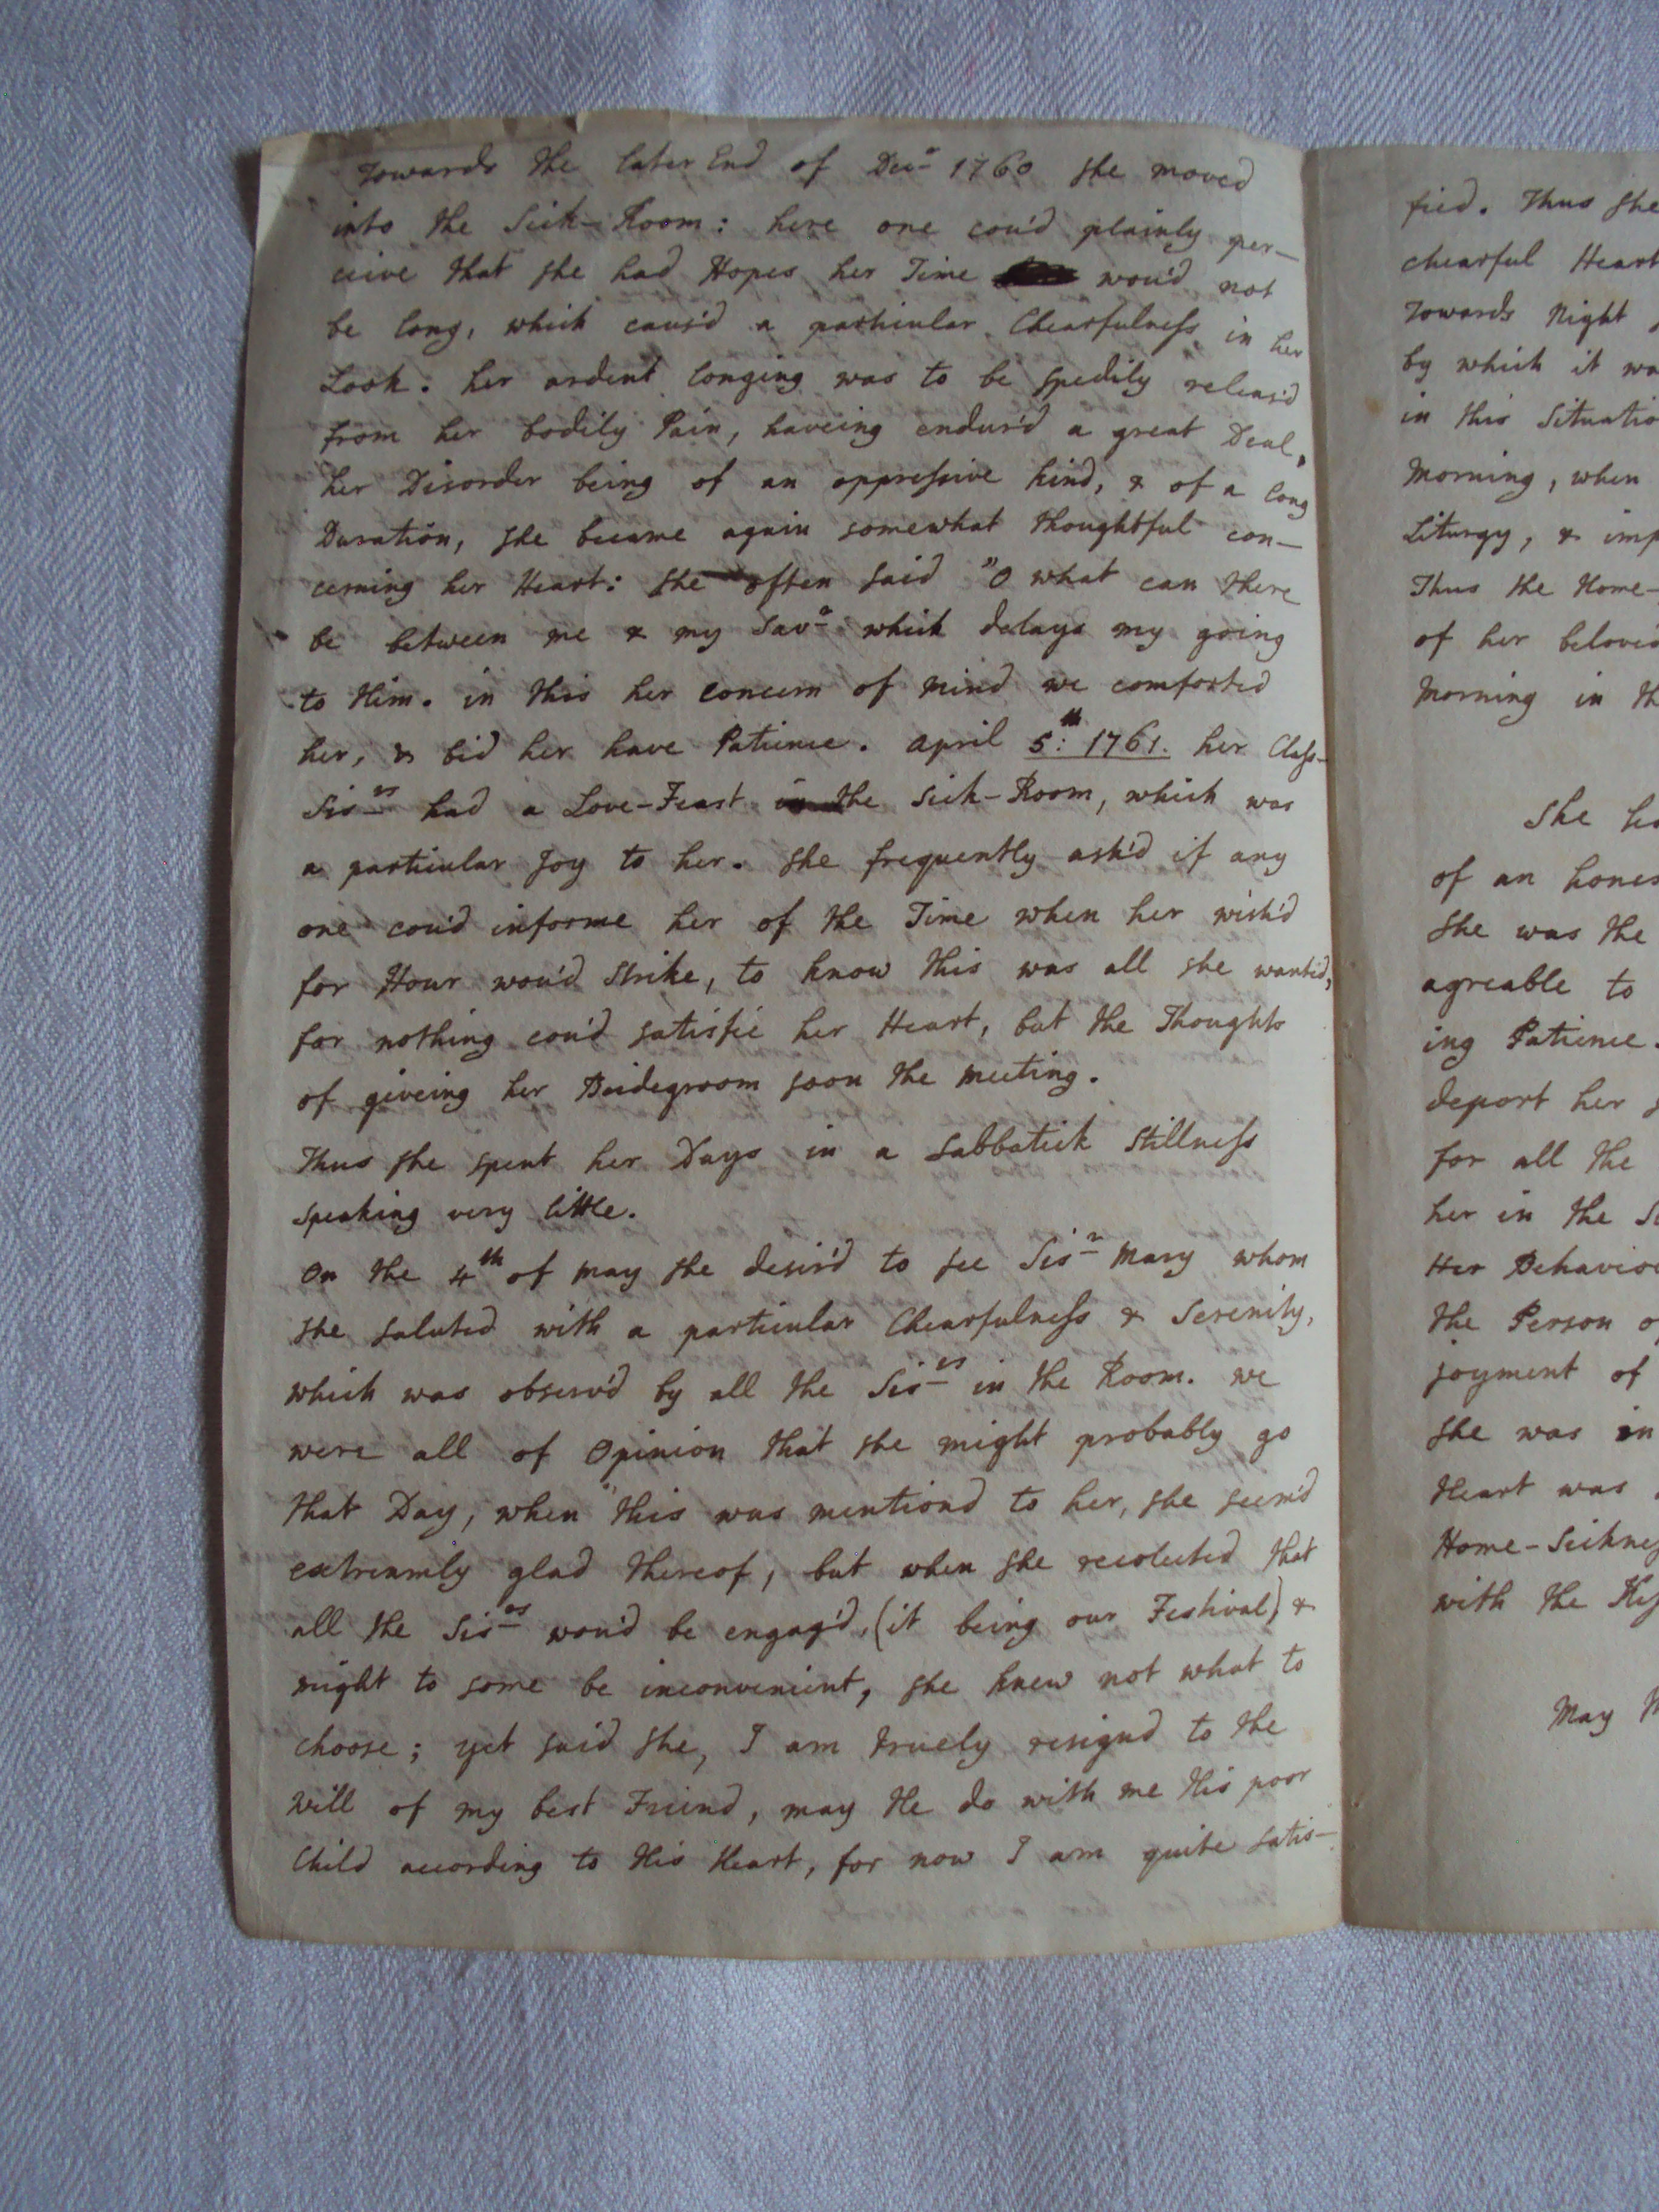 Towards the later End of Decr 1760 she moved
into the Sick-Room: here one cou'd plainly per-
ceive that she had Hopes her Time wou'd not
be long, which caus'd a particular Chearfulness in her
Look. her ardent longing was to be spedily releas'd
from her bodily Pain, haveing endur'd a great Deal,
her Disorder being of an oppressive kind, & of a long
Duration, she became again somewhat thoughtful con-
cerning her Heart: she often said "O what can there
be between me & my Savr which delays my going
to Him. in this her concern of mind we comforted
her, & bid her have Patience. April 5:th 1761. her Class-
Sisrs had a Love-Feast in the Sick-Room, which was
a particular Joy to her. she frequently ask'd if any
one cou'd informe her of the Time when her wish'd
for Hour wou'd Strike, to know this was all she wanted,
for nothing cou'd satisfie her Heart, but the Thoughts
of giveing her Bridegroom soon the meeting.
Thus she spent her Days in a Sabbatick Stillness
speaking very little.
On the 4th of may she desir'd to see Sisr Mary whom
she saluted with a particular Chearfulness & Serenity,
which was observ'd by all the Sisrs in the Room. we
were all of Opinion that she might probably go
that Day, when this was mentiond to her, she seem'd
extreamly glad thereof, but when she recolected that
all the Sisrs wou'd be engag'd, (it being our Festival) &
might to some be inconvenient, she knew not what to
choose; yet said she, I am truely resignd to the
Will of my best Friend, may He do with me His poor
Child according to His Heart, for now I am quite satis-
fied. Thus she
chearful Heart
Towards Night
by which it wa
in this Situatio
Morning, when
Liturgy, & imp
Thus the Home-
of her belove
Morning in th
She ha
of an hones
She was the
agreable to
ing Patience.
deport her s
for all the
her in the S
Her Behavio
the Person o
joyment of
she was in
Heart was
Home-Sickness
with the Kis
May